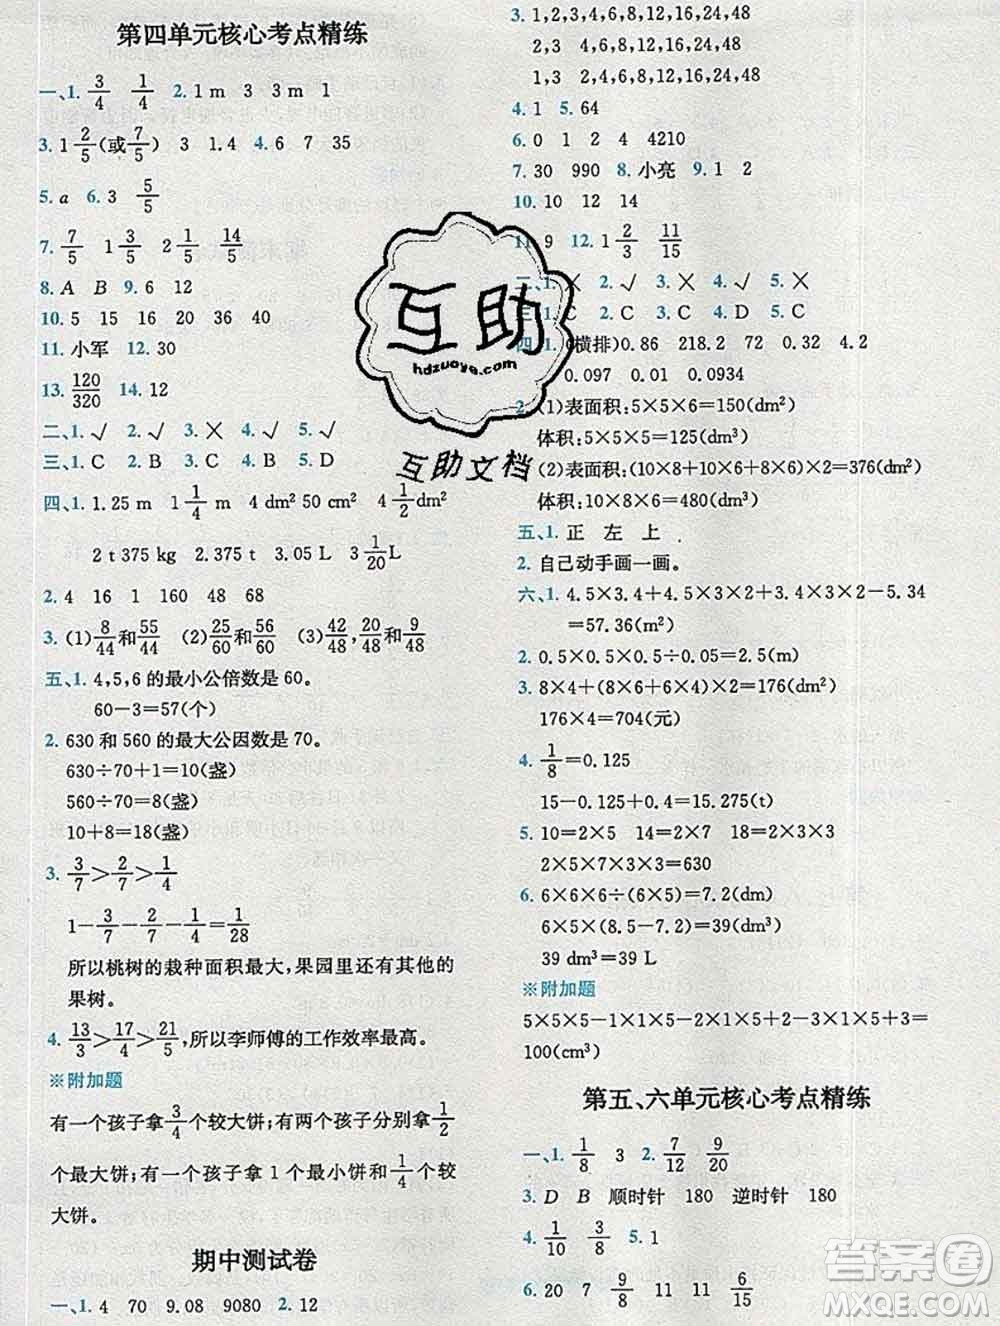 第四单元核心考点精练
一、1. 3/4 1/4 2. 1 m 3 3 m 1
3. 1 2/5(或7/5) 3 1.4 4. 6 7 35
5. a 6. 3 5/5
7. 7/5 1 3/5 2 1/5 14/5
8. A B 9. 6 12
10. 5 15 16 20 36 40
11. 小军 12. 30
13. 120/320 14. 12
二、1. √ 2. √ 3. × 4. √ 5. √
三、1. C 2. B 3. C 4. B 5. C
四、1. 1.25 m 1 1/4 m 4 dm² 50 cm² 4 1/2 dm²
2 t 375 kg 2.375 t 3.05 L 3 1/20 L
2. 4 16 1 160 48 68
3. (1) 8/44和55/44 (2) 25/60和56/60 (3) 42/48, 20/48和9/48
五、1. 4,5,6 的最小公倍数是 60。
60－3＝57(个)
2. 630 和 560 的最大公因数是 70。
630÷70＋1＝10(盏)
560÷70＝8(盏)
10＋8＝18(盏)
3. 3/7＞2/7＞1/4
1－3/7－2/7－1/4＝1/28
所以桃树的栽种面积最大,果园里还栽种其他
果树。
4. 13/3＞17/4＞21/5,所以李师傅的工作效率最高。
※附加题
有一个孩子拿3/4个较大饼;有两个孩子分别拿1/2
个最大饼;有一个孩子拿 1 个最小饼和1/4个较
大饼。
期中测试卷
一、1. 4 70 9.08 9080 2. 12
3. 1,2,3,4,6,8,12,16,24,48
2,3 4,6,8,12,16,24,48
1,3 2,4,6,8,12,16,24,48
4. 1 5. 64
6. 0 1 4 2 4210
7. 30 990 8. 小亮 9. 1 2
10. 10 12 14
11. 9 12. 1 2/3 11/15
二、1. × 2. √ 3. √ 4. √ 5. ×
三、1. C 2. C 3. C 4. D 5. C
四、1. (横排)0.86 218.2 72 0.32 4.2
0.097 0.01 0.0934
2. (1)表面积:5×5×6＝150(dm²)
体积:5×5×5＝125(dm³)
(2)表面积:(10×8＋10×6＋8×6)×2＝376(dm²)
体积:10×8×6＝480(dm³)
五、1. 正 左 上
2. 自己动手画一画。
六、1. 4.5×3.4＋4.5×3×2＋3.4×3×2－5.34
＝57.36(m²)
2. 0.5×0.5×0.5÷0.05＝2.5(m)
3. 8×4＋(8×6＋4×6)×2＝176(dm²)
176×4＝704(元)
4. 1/8＝0.125
15－0.125＋0.4＝15.275(t)
5. 10＝2×5 14＝2×7 18＝2×3×3
2×5×7×3×3＝630
6. 6×6×6÷(6×5)＝7.2(dm)
6×5×(8.5－7.2)＝39(dm³)
39 dm³＝39 L
※附加题
5×5×5－1×1×5－1×2×5－1×1×5＋3＝
100(cm³)
第五、六单元核心考点精练
一、1. 1/8 3 2. 7/12 9/20
3. D B 顺时针 180 逆时针 180
4. 1/10 3/10 5. 1
6. 20 7 9/8 11 11 6/15
互助
hdzuoye.com
互助文档
答案圈
MXQE.COM